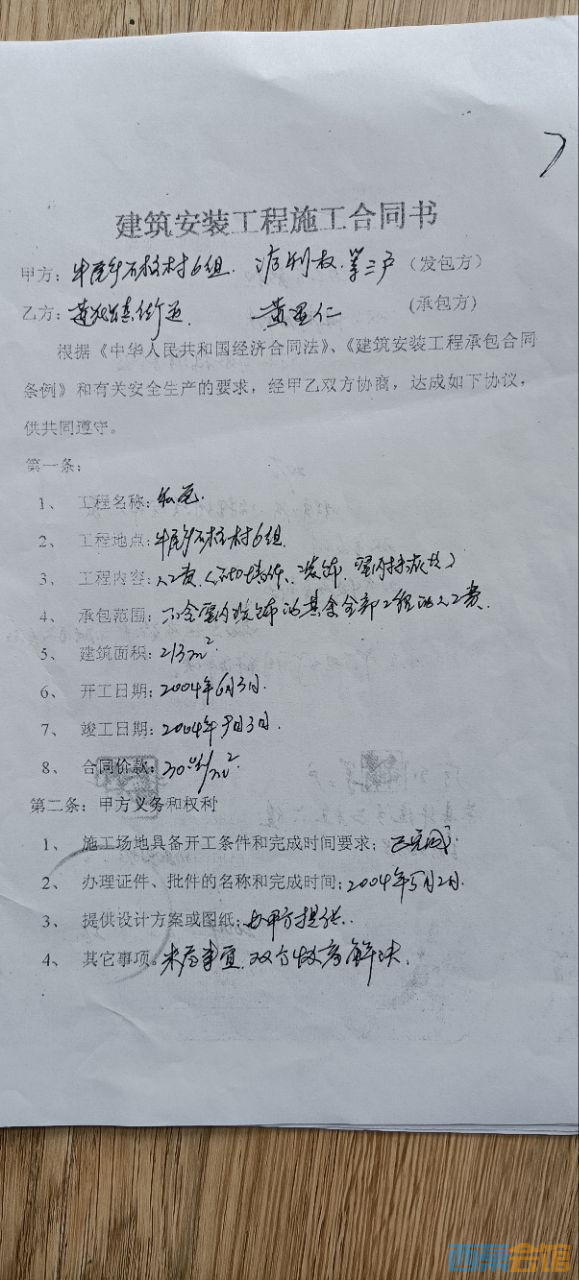 建筑安装工程施工合同书
甲方：牛尾乡石桥村6组. 利权.等三户（发包方）
乙方：镇街道. 黄 仁（承包方）
根据《中华人民共和国经济合同法》、《建筑安装工程承包合同
条例》和有关安全生产的要求，经甲乙双方协商，达成如下协议，
供共同遵守。
第一条：
1、 工程名称：私宅.
2、 工程地点：牛尾乡石桥村6组.
3、 工程内容：人工费
4、 承包范围：不含室内装饰的其余全部工程的人工费.
5、 建筑面积：213m²
6、 开工日期：2004年6月3日.
7、 竣工日期：2004年9月3日.
8、 合同价款：/m².
第二条：甲方义务和权利
1、 施工场地具备开工条件和完成时间要求：已完成.
2、 办理证件、批件的名称和完成时间：2004年5月2日.
3、 提供设计方案或图纸：由甲方提供.
4、 其它事项。未尽事宜.双方协商解决.
西祠会馆